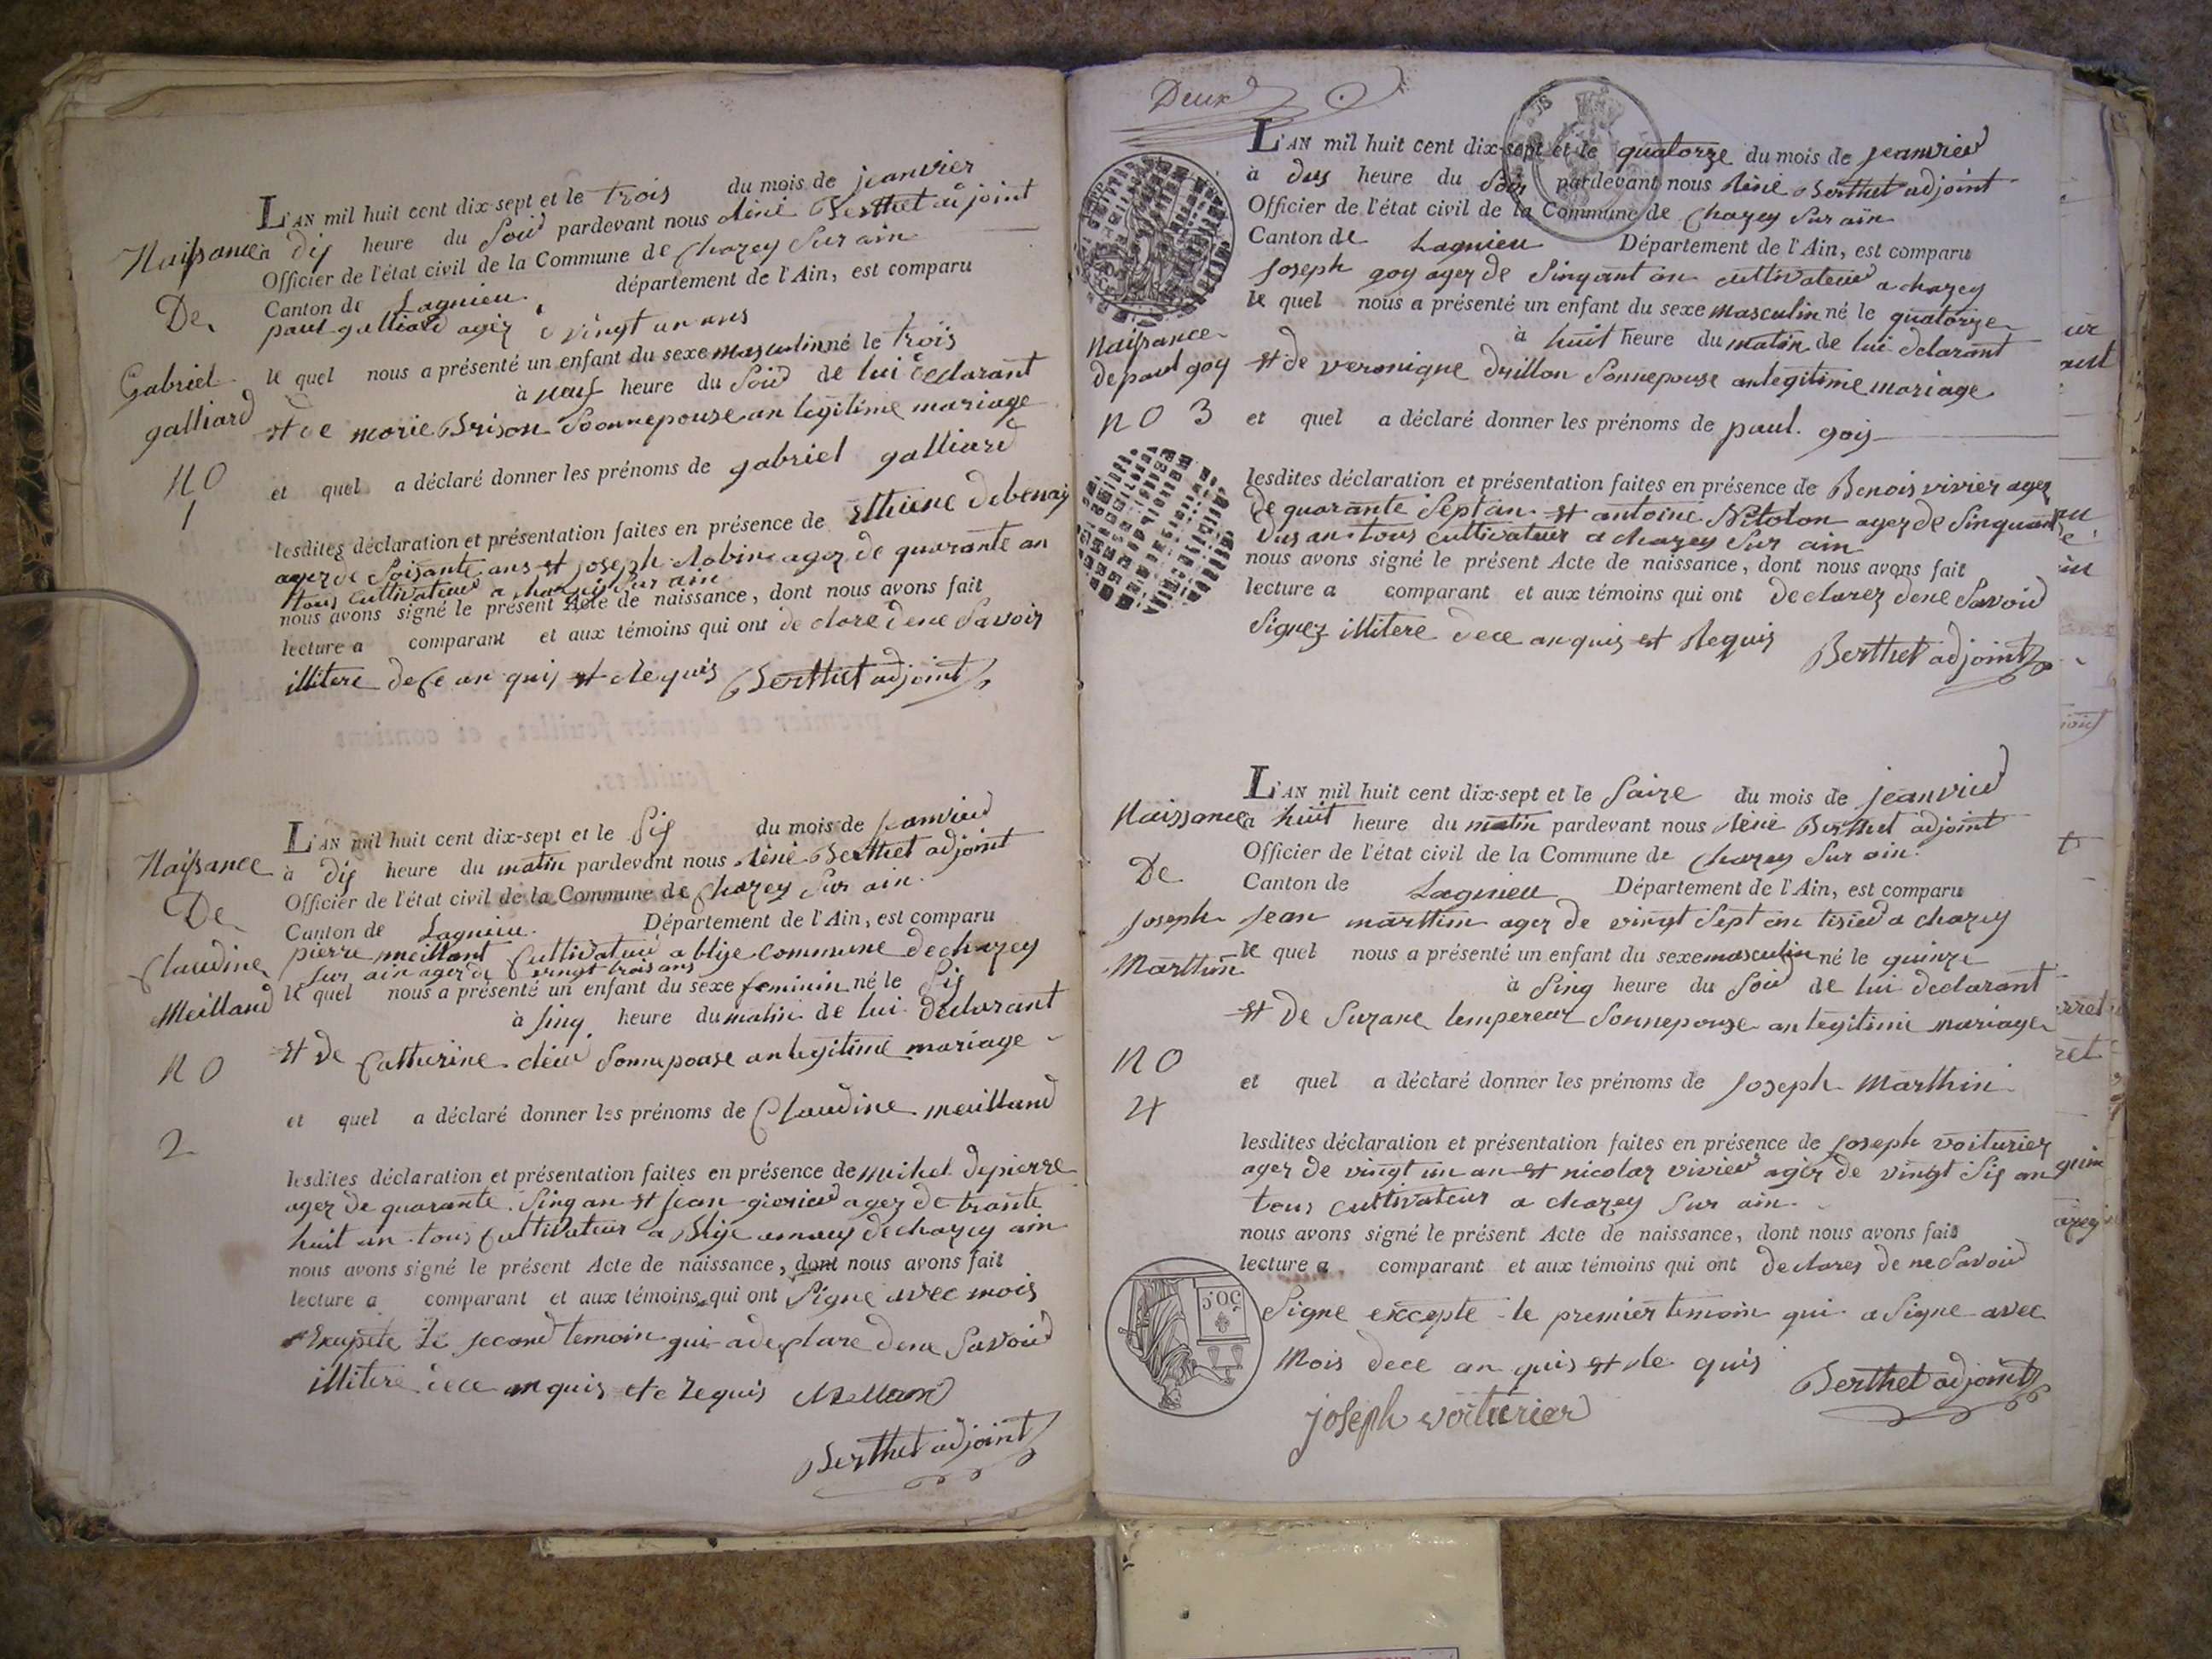 L'AN mil huit cent dix-sept et le trois du mois de jeanvier
à dis heure du Soir pardevant nous Réné Berthet adjoint
Officier de l'état civil de la Commune de Chazey Sur ain
Canton de Lagnieu département de l'Ain, est comparu
paul galliard agez de vingt un ans
le quel nous a présenté un enfant du sexe masculin né le trois
à neuf heure du Soir de lui declarant
et de marie Brison Sonnepouse an legitime mariage
et quel a déclaré donner les prénoms de gabriel galliard
lesdites déclaration et présentation faites en présence de
agez de Soisante ans et joseph Robin agez de quarante an
tous cultivateur a chazey Sur ain
nous avons signé le présent Acte de naissance, dont nous avons fait
lecture a comparant et aux témoins qui ont de clare dene Savoir
illitere dece an quis et Requis Berthet adjoint
Naissance
De
Gabriel
galliard
NO
1
L'AN mil huit cent dix-sept et le Sis du mois de jeanvier
à dis heure du matin pardevant nous Réné Berthet adjoint
Officier de l'état civil de la Commune de Chazey Sur ain.
Canton de Lagnieu. Département de l'Ain, est comparu
pierre meillant Cultivateur a blije commune de chazey
Sur ain agez de vingt trois ans
le quel nous a présenté un enfant du sexe feminin né le Sis
à Sinq heure du matin de lui declarant
et de Catherine Sonnepouse an legitime mariage
et quel a déclaré donner les prénoms de Claudine meilland
lesdites déclaration et présentation faites en présence de michel depierre
agez de quarante Sinq an et jean agez de trante
huit an tous Cultivateur a Blije de chazey ain
nous avons signé le présent Acte de naissance, dont nous avons fait
lecture a comparant et aux témoins qui ont Signe avec mois
Excepete le second temoin qui a de clare dene Savoir
illitere dece an quis et e Requis Meilland
Berthet adjoint
Naissance
De
Claudine
Meilland
NO
2
Deux
L'AN mil huit cent dix-sept et le quatorze du mois de jeanvier
à dus heure du Soir pardevant nous Réné Berthet adjoint
Officier de l'état civil de la Commune de Chazey Sur ain
Canton de Lagnieu Département de l'Ain, est comparu
Joseph goy agez de Sinqant an cultivateur a chazey
le quel nous a présenté un enfant du sexe masculin né le quatorze
à huit heure du matin de lui declarant
et de veronique Drillon Sonnepouse an legitime mariage
et quel a déclaré donner les prénoms de paul. gois
lesdites déclaration et présentation faites en présence de Benois vivier agez
de quarante Sept an et antoine agez de Sinquant
dus an tous cultivateur a chazey Sur ain
nous avons signé le présent Acte de naissance, dont nous avons fait
lecture a comparant et aux témoins qui ont declarez dene Savoir
Signez illitere dece an quis et Requis Berthet adjoint
Naissance
de paul goy
NO 3
L'AN mil huit cent dix-sept et le Saize du mois de jeanvier
à huit heure du matin pardevant nous Réné Berthet adjoint
Officier de l'état civil de la Commune de Chazey Sur ain.
Canton de Lagnieu Département de l'Ain, est comparu
Jean marthin agez de vingt Sept an tisier a chazey
le quel nous a présenté un enfant du sexe masculin né le quinze
à Sinq heure du Soir de lui declarant
et de Suzane lempereur Sonnepouse an legitime mariage
et quel a déclaré donner les prénoms de Joseph Marthin
lesdites déclaration et présentation faites en présence de joseph voiturier
agez de vingt un an et nicolaz vivier agez de vingt Sis an
tous cultivateur a chazey Sur ain.
nous avons signé le présent Acte de naissance, dont nous avons fait
lecture a comparant et aux témoins qui ont declares de ne Savoir
Signe excepte le premier temoin qui a Signe avec
Mois dece an quis et Re quis Berthet adjoint
joseph voiturier
Naissance
De
Joseph
Marthin
NO
4
50C